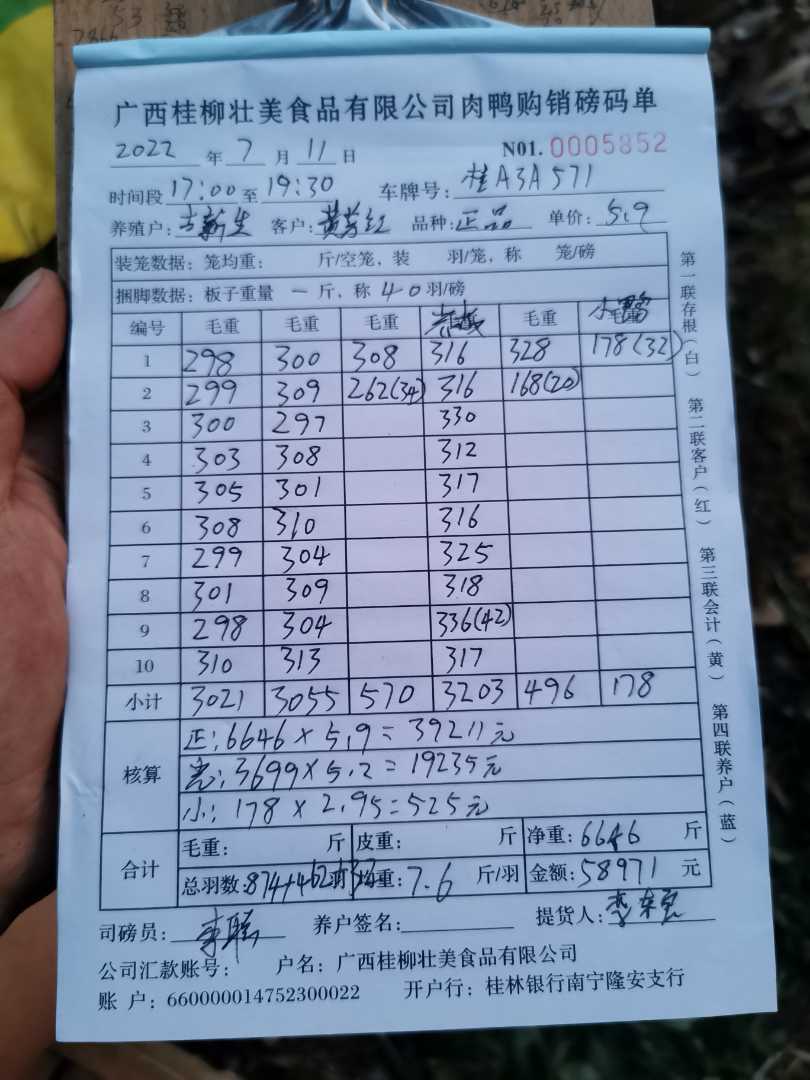 广西桂柳壮美食品有限公司肉鸭购销磅码单
2022 年 7 月 11 日 N01. 0005852
时间段 17:00 至 19:30 车牌号: 桂A3A571
养殖户: 古新生 客户: 黄芳红 品种: 正品 单价: 5.9
装笼数据: 笼均重: 斤/空笼, 装 羽/笼, 称 笼/磅
捆脚数据: 板子重量 一 斤, 称 40 羽/磅
编号 毛重 毛重 毛重 毛重 小
1 298 300 308 316 328 178(32)
2 299 309 262(34) 316 168(20)
3 300 297 330
4 303 308 312
5 305 301 317
6 308 310 316
7 299 304 325
8 301 309 318
9 298 304 336(42)
10 310 313 317
小计 3021 3055 570 3203 496 178
核算
正: 6646 × 5.9 = 39211元
: 3699 × 5.2 = 19235元
小: 178 × 2.95 = 525元
合计
毛重: 斤 皮重: 斤 净重: 6646 斤
总羽数: 874+462+32 羽 均重: 7.6 斤/羽 金额: 58971 元
司磅员: 养户签名: 提货人:
公司汇款账号: 户名: 广西桂柳壮美食品有限公司
账 户: 660000014752300022 开户行: 桂林银行南宁隆安支行
第一联存根(白) 第二联客户(红) 第三联会计(黄) 第四联养户(蓝)